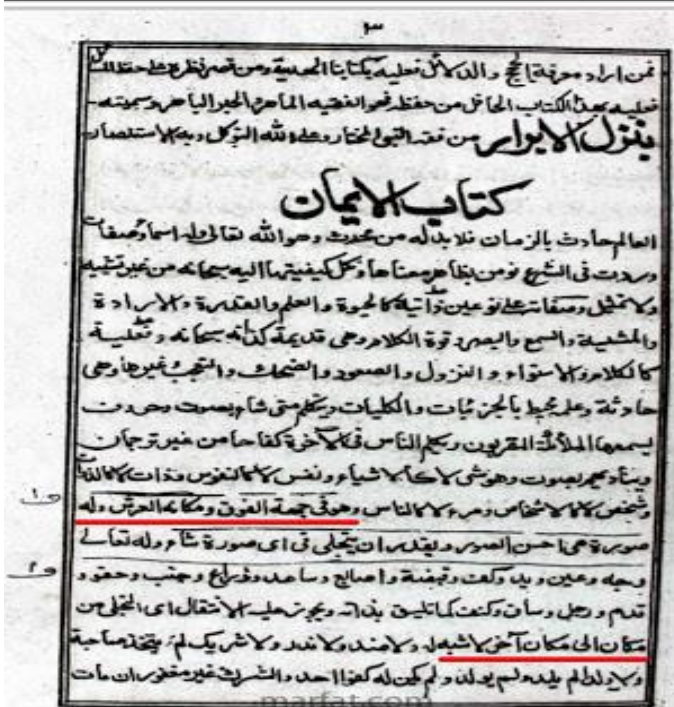 ٣
فمن اراد معرفة الحجج والدلائل فعليه بكتابنا ومن قصر نظره على حفظ المسائل
فعليه بهذا الكتاب الحافل من حفظه فهو الفقيه الماهر الحبر الباهر وسميته
بنزل الابرار من فقه النبي المختار وعلى الله التوكل وبه الاستعانة
كتاب الايمان
العالم حادث بالزمان فلا بد له من محدث وهو الله تعالى وله اسماء وصفات
وردت فى الشرع نومن بظاهر معناها ونكل كيفيتها اليه سبحانه من غير تشبيه
ولا تمثيل وصفاته على نوعين ذاتية كالحيوة والعلم والقدرة والارادة
والمشيية والسمع والبصر وقوة الكلام وهى قديمة كذاته سبحانه وفعلية
كالكلام والاستواء والنزول والصعود والضحك والتعجب غيرها وهى
حادثة وعلمه محيط بالجزئيات والكليات ويتكلم متى شاء بصوت وحرف
يسمعها الملائكة المقربون ويكلم الناس فى الآخرة كفاحا من غير ترجمان
ويناديهم بصوت وهو شى لا كالاشياء ونفس لا كالنفوس وذات لا كالذوات
وشخص لا كالاشخاص ومرء لا كالناس وهو فى جهة الفوق ومكانه العرش وله
صورة هى احسن الصور ويقدر ان يتجلى فى اى صورة شاء وله تعالى
وجه وعين ويد وكف وقبضة واصابع وساعد وذراع وجنب وحقو و
قدم ورجل وساق وكنف كما تليق بذاته ويجوز عليه الانتقال اى التجلى من
مكان الى مكان آخر لا شبه له ولا ضد ولا ند ولا شريك لم يتخذ صاحبة
ولا ولدا لم يلد ولم يولد ولم يكن له كفوا احد والشرك غير مغفور ان مات
ف١
ف٢
marfat.com